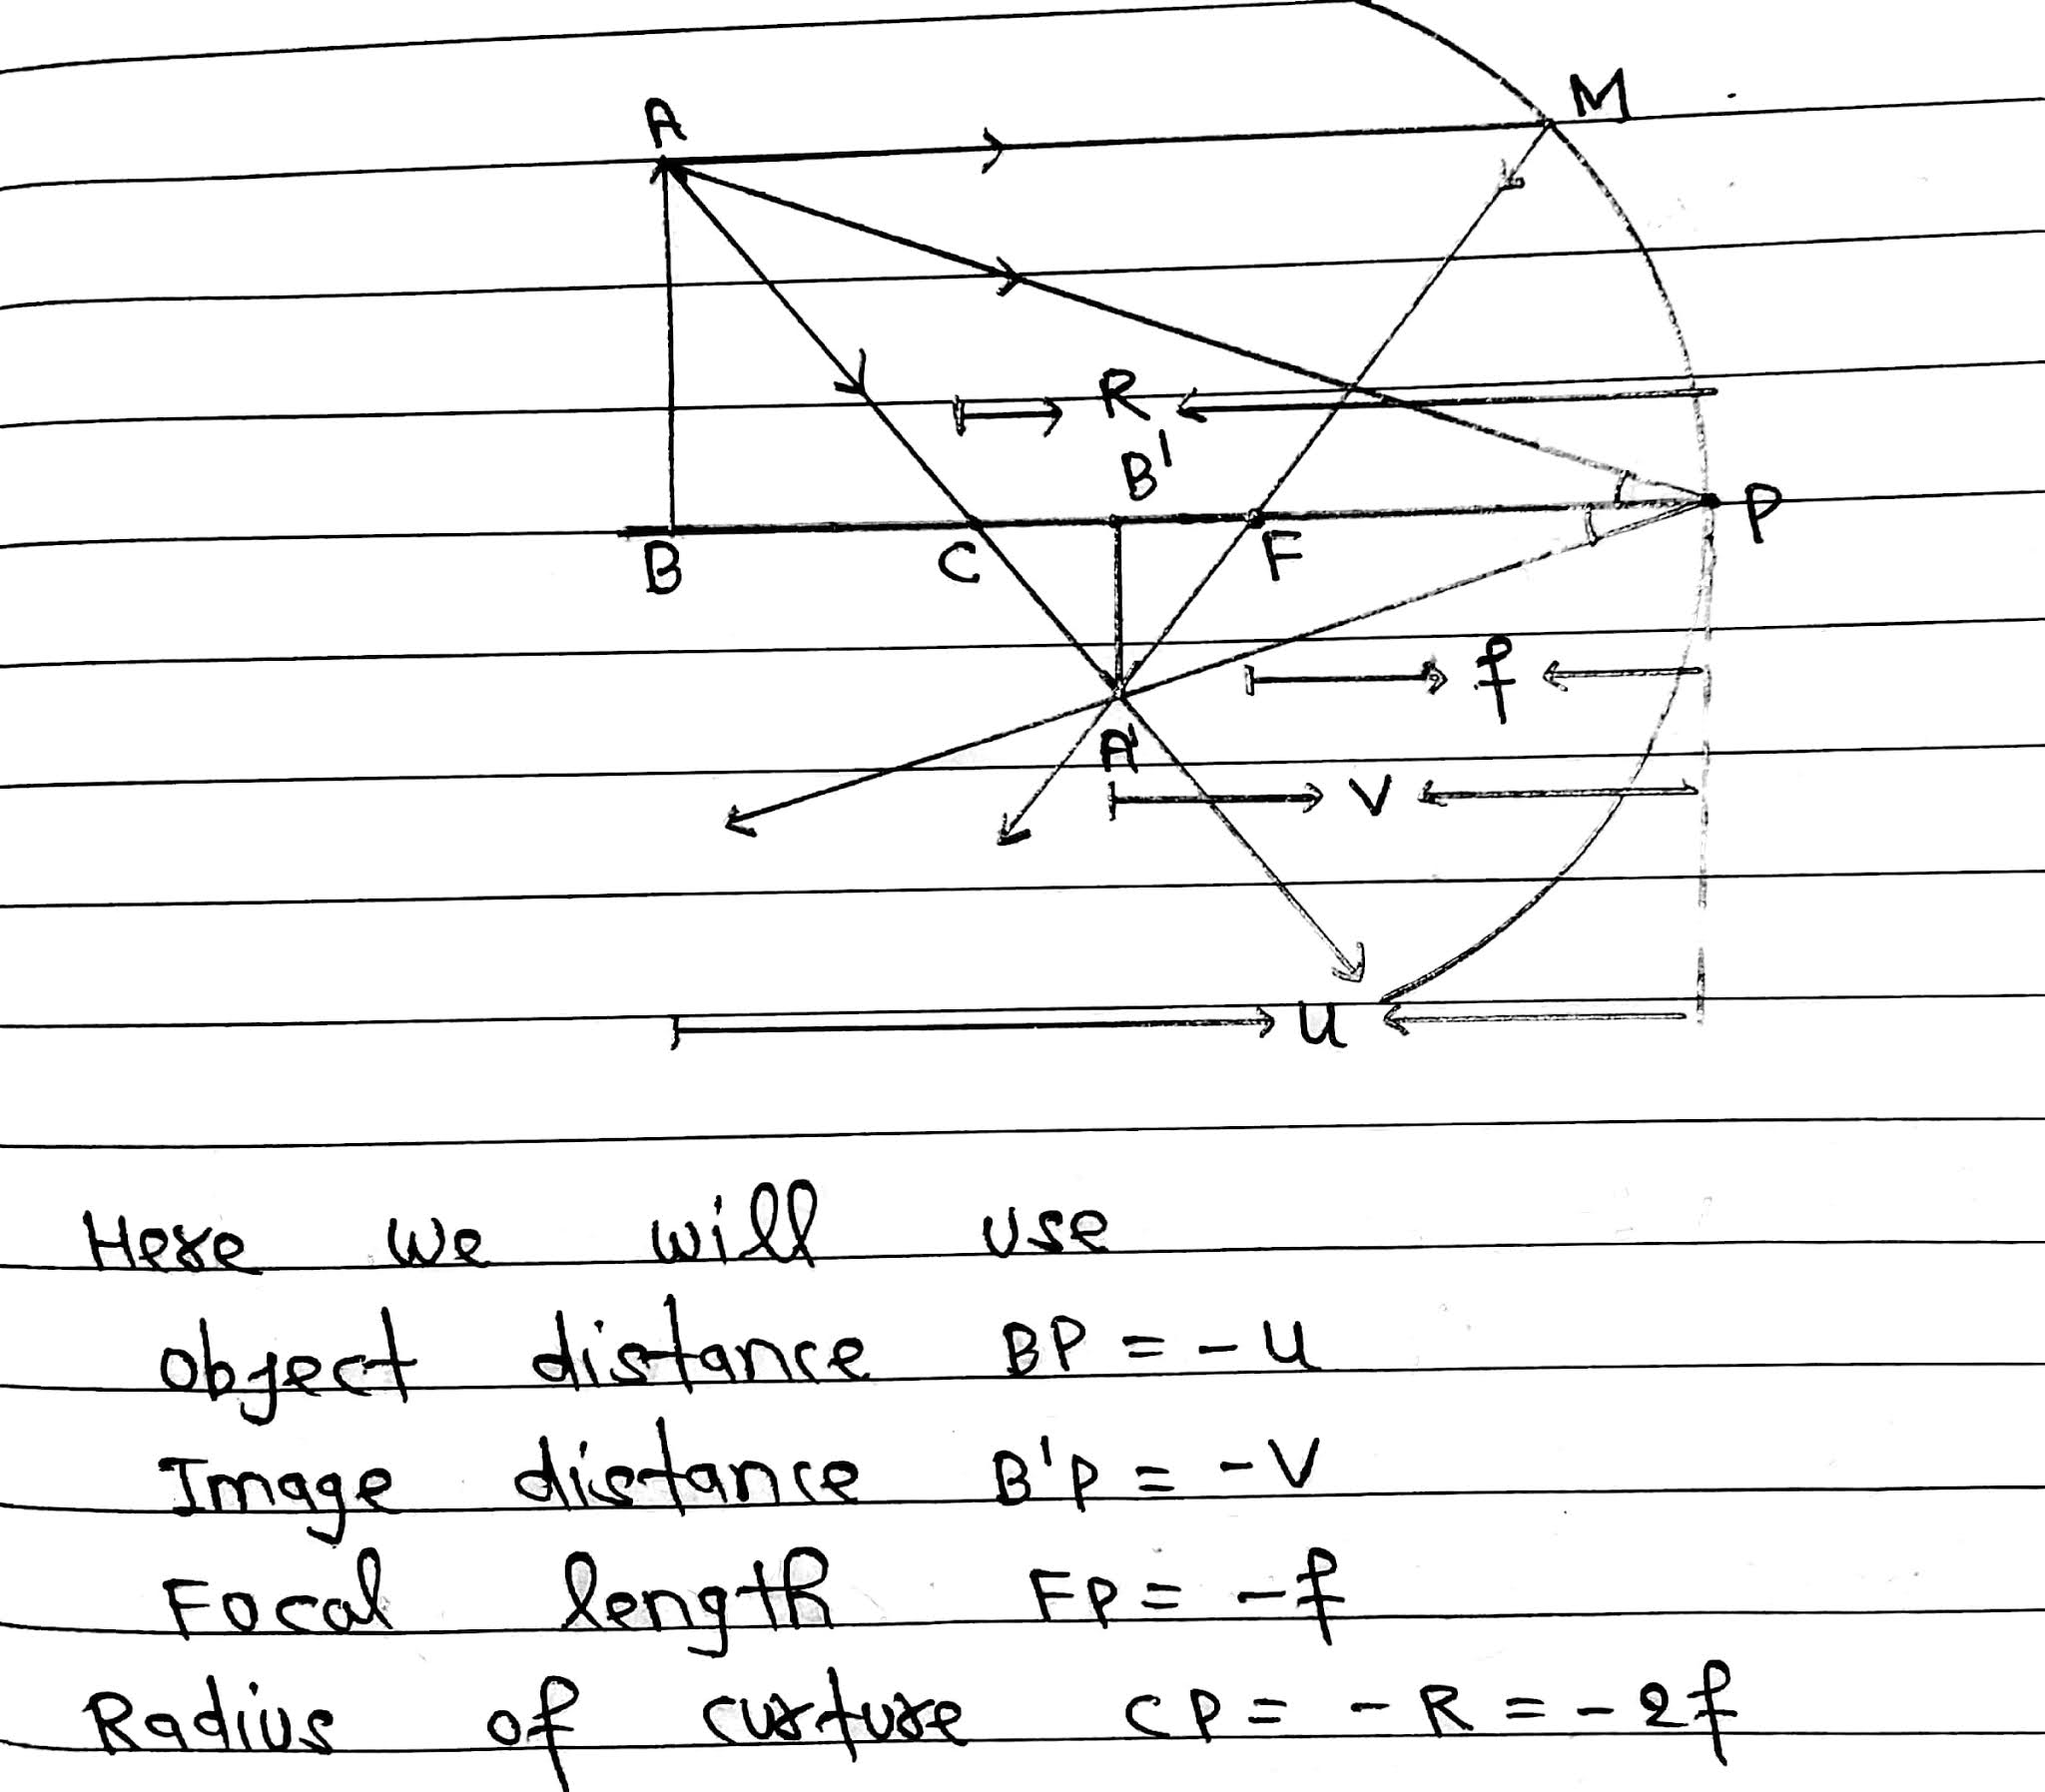 A
M
R
B'
P
B
C
F
f
A'
V
u
Here we will use
object distance BP = - u
Image distance B'P = - V
Focal length FP = - f
Radius of curture CP = - R = - 2f